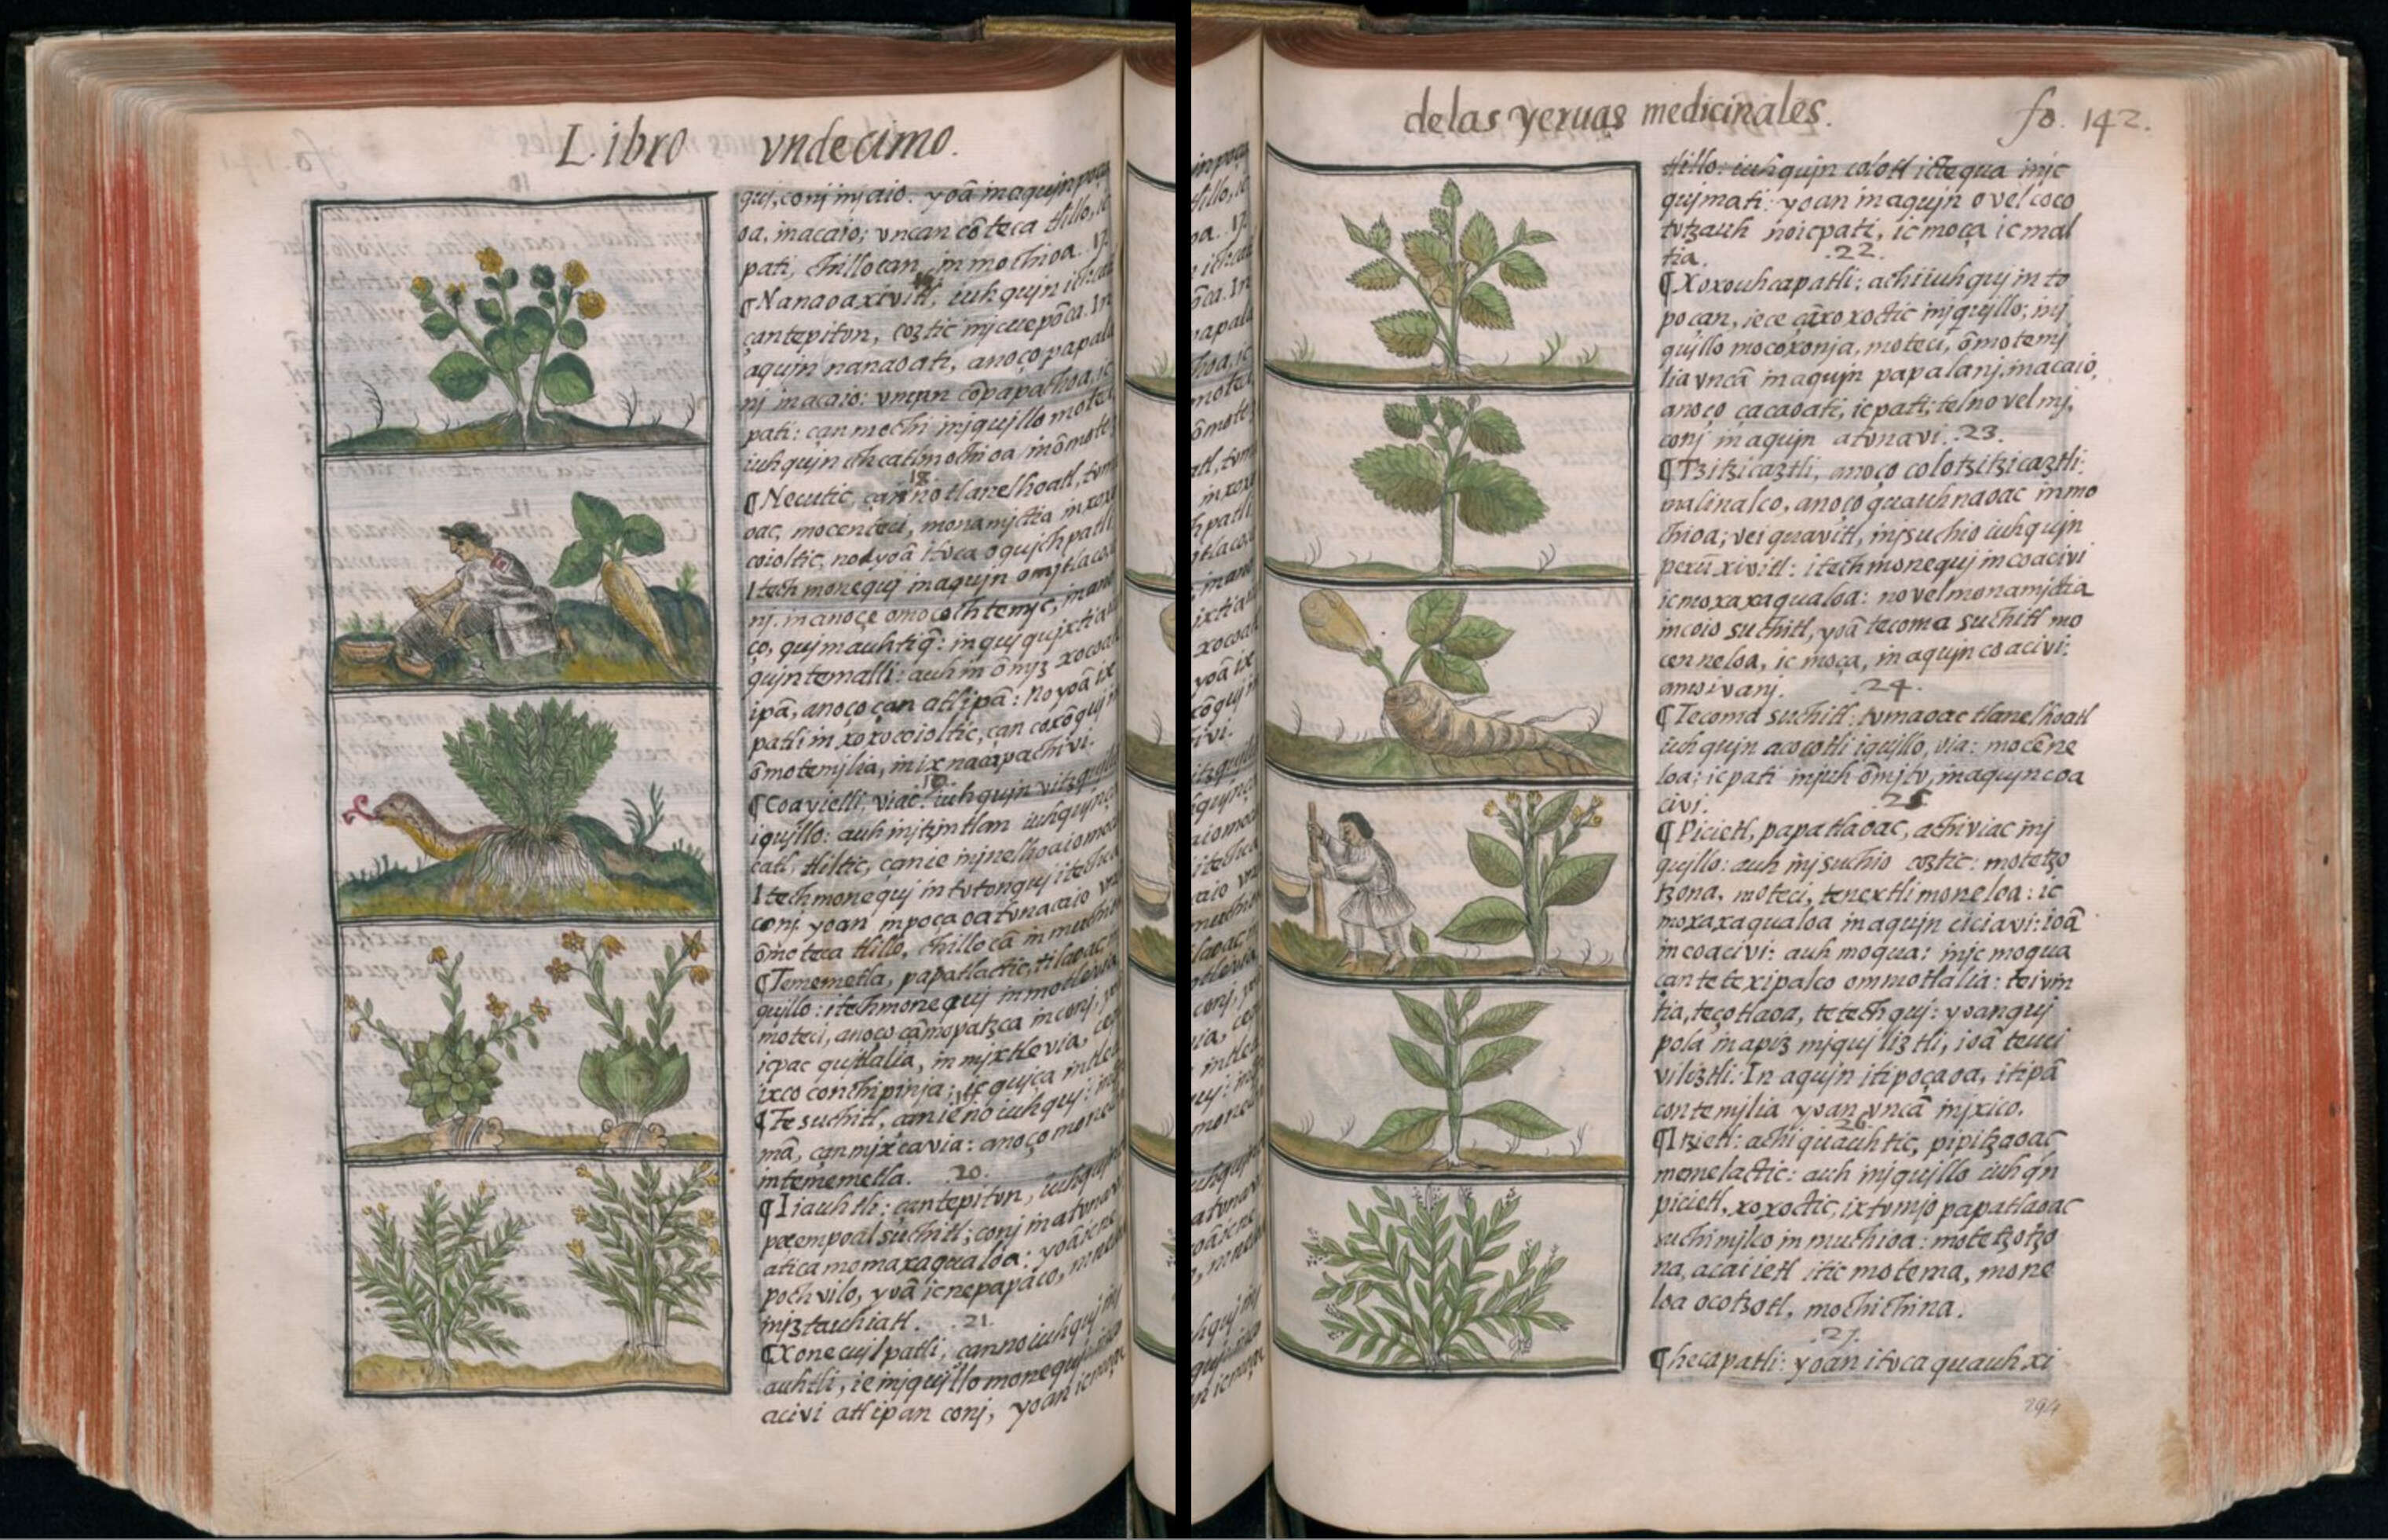 Libro vndecimo.
quj, conj injaio. yoã inaquin poça
oa, inacaio; vncan cõteca tlillo, ic
pati, chillocan, in mochioa. 17.
¶Nanaoaxiuitl, iuhquin ichca
çantepiton, coztic injcuepõca. In
aquin nanaoati, anoço papala
nj inacaio: vncan cõpapachoa, ic
pati: çan mochi injquillo moteci
iuhquin chcatl mochioa inõmote
18.
¶Necutic, çan no tlanelhoatl, tom
oac, mocenteci, monamjctia inxoxo
coioltic, no yoã itoca oquichpatli
Itech monequj inaquin omjtlacoa
nj. in anoçe omocochtemjc, in ano
ço, qujmauhtiq̃: inquiquixtia
qujntemalli: auh in õnjz xocoa
ipã, anoço çan atl ipã: No yoã ix
patli in xoxocoioltic, çan coxõquj
õmotemjlia, in ixnacapachivi.
19.
¶Coavielli, viac. iuhquin vitzquil
iquillo: auh injtzintlan iuhquin
catl, tliltic, çanie injnelhoaio mo
Itech monequj in totonquj itech ca
conj. yoan inpoçaoa tonacaio vn
õmoteca tlillo, chillocã in mochi
¶Tememetla, papatlactic, tilaoac
quillo: itech monequj in motlevia
moteci, anoço cãmopatzca in conj, yo
icpac qujtlalia, in mjxtlevia,
ixco conchipinja; ic qujça intle
¶Tesuchitl, amie no iuhquj:
mã, çan mjxcavia: anoço mone
intememetla. 20.
¶Iiauhtli: çantepiton, iuhquin
pacempoalsuchitl; conj inatonavi
atica momaxaqualoa: yoã ic ne
pochvilo, yoã ic nepapaco,
mjztauhiatl. .21.
¶Xonecuilpatli, çannoiuhquj inj
auhtli, ie injquillo monequj
acivi atl ipan conj, yoan ic
delas yeruas medicinales.
fo. 142.
tlillo: iuhquin colotl ictequa injc
qujmati: yoan inaquin ovel coco
totzauh noicpati, ic moça ic mal
tia. .22.
¶Xoxouhcapatli; achi iuhquj in to
pocan, iece cãxoxoctic injquillo; inj
quillo mocoxonja, moteci, õmotemj
lia vncã inaquin papalanj inacaio,
anoço çacaoati, ic pati: tel no vel mj,
conj inaquin atonavi. .23.
¶Tzitzicaztli, anoço colotzitzicaztli:
malinalco, anoço quauhnaoac inmo
chioa; vei quavitl, injsuchio iuhquin
perũ xivitl: itech monequj incoacivi
ic moxaxaqualoa: no vel monamjctia
incoiosuchitl, yoã tecoma suchitl mo
cenneloa, ic moça, inaquin coacivi:
amoivanj. .24.
¶Tecoma suchitl: tomaoac tlanelhoatl
iuhquin acocotli iquillo, via: mocẽne
loa; icpati injuh õmjto, inaquin coa
civi. .25
¶Picietl, papatlaoac, achiviac inj
quillo: auh injsuchio coztic: motetzo
tzona, moteci, tenextli moneloa: ic
moxaxaqualoa inaquin ciciavi: ioã
incoacivi: auh moqua: injc moqua
çan tetexipalco ommotlalia: teivin
tia, teçotlaoa, tetech quj: yoan quj
pola in apiz mjqujliztli, ioã teuci
viliztli. In aquin itipoçaoa, itipã
contemjlia yoan vncã injxico.
26
¶Itzietl: achi quauhtic, pipitzaoac
memelactic: auh injquillo iuhq̃n
picietl, xoxoctic, ixtomjo papatlaoac
suchimjlco in muchioa: motetzotzo
na, acaiietl itic motema, mone
loa ocotzotl, mochichina.
.27.
¶hecapatli: yoan itoca quauhxi
294